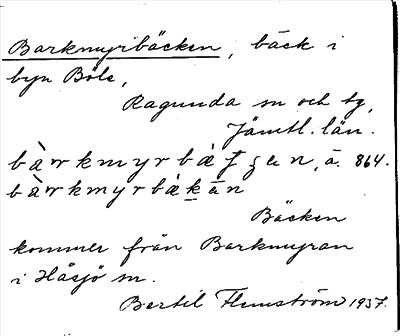 Barkmyrbäcken, bäck i
byn Böle,
Ragunda sn och tg,
Jämtl. län.
bàrrkmyrbä̀ƒʒɑn, ä. 864.
bàrrkmyrbä̀kän
Bäcken
kommer från Barkmyran
i Håsjö sn.
Bertil Flemström 1937.